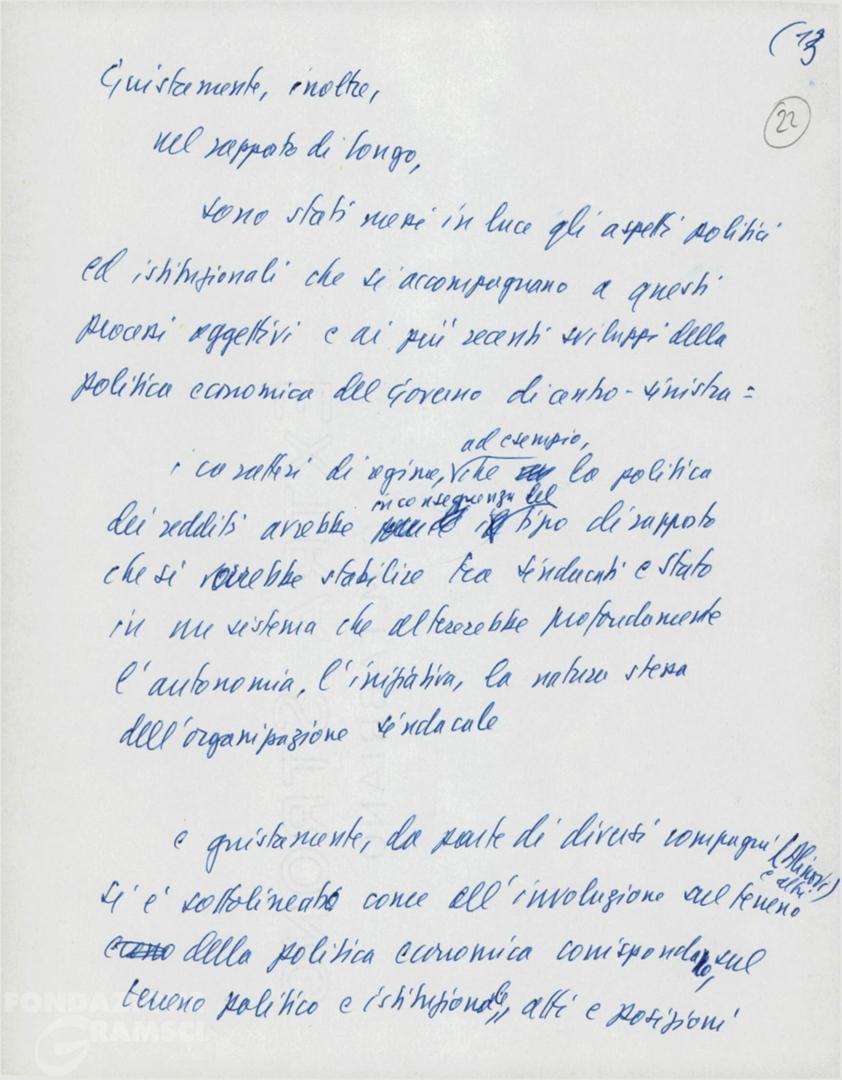 (13
22
Giustamente, inoltre,
nel rapporto di Longo,
sono stati messi in luce gli aspetti politici
ed istituzionali che si accompagnano a questi
processi oggettivi e ai più recenti sviluppi della
politica economica del Governo di centro-sinistra =
ad esempio,
i caratteri di regime, che la politica
in conseguenza del
dei redditi avrebbe tipo di rapporto
che si vorrebbe stabilire tra sindacati e stato
in un sistema che altererebbe profondamente
l'autonomia, l'iniziativa, la natura stessa
dell'organizzazione sindacale
e giustamente, da parte di diversi compagni (Alinovi
e altri)
si è sottolineato come all'involuzione sul terreno
della politica economica corrispondano, sul
terreno politico e istituzionale, atti e posizioni
FONDAZIONE
GRAMSCI